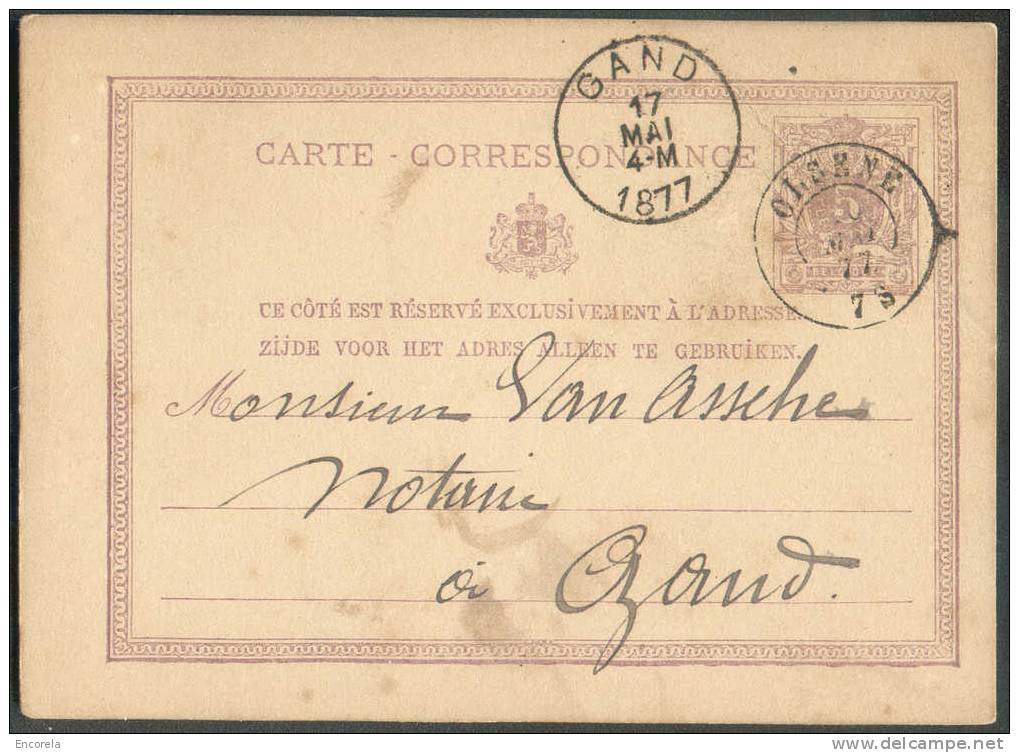 GAND
17
MAI
4-M
1877
CARTE - CORRESPONDANCE
OLSENE
MAI
77
7 S
CE CÔTÉ EST RÉSERVÉ EXCLUSIVEMENT À L'ADRESSE.
ZIJDE VOOR HET ADRES ALLEEN TE GEBRUIKEN.
Monsieur Van Assche
Notaire
à Gand.
Encorela
www.delcampe.net